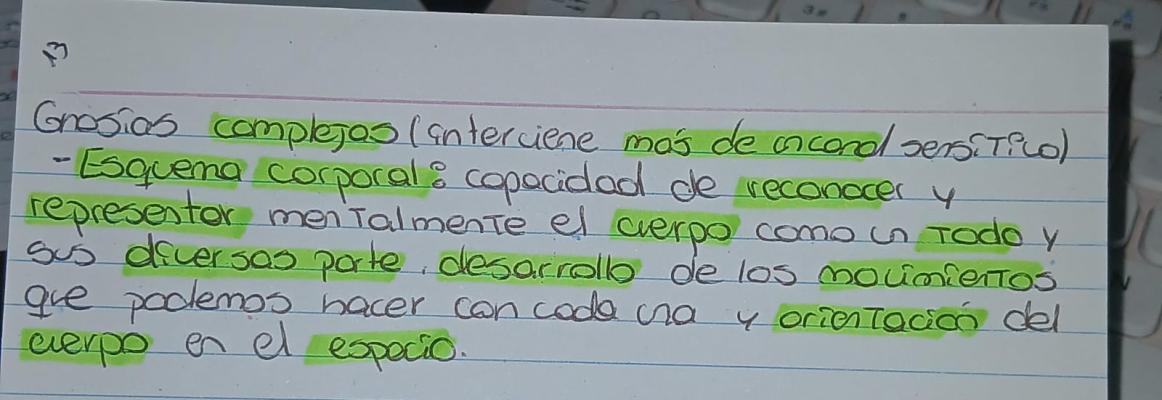 13
Gnosias complejas (interviene más de un canal sensitivo)
- Esquema corporal: capacidad de reconocer y
representar mentalmente el cuerpo como un todo y
sus diversas parte, desarrollo de los movimientos
que podemos hacer con cada una y orientación del
cuerpo en el espacio.